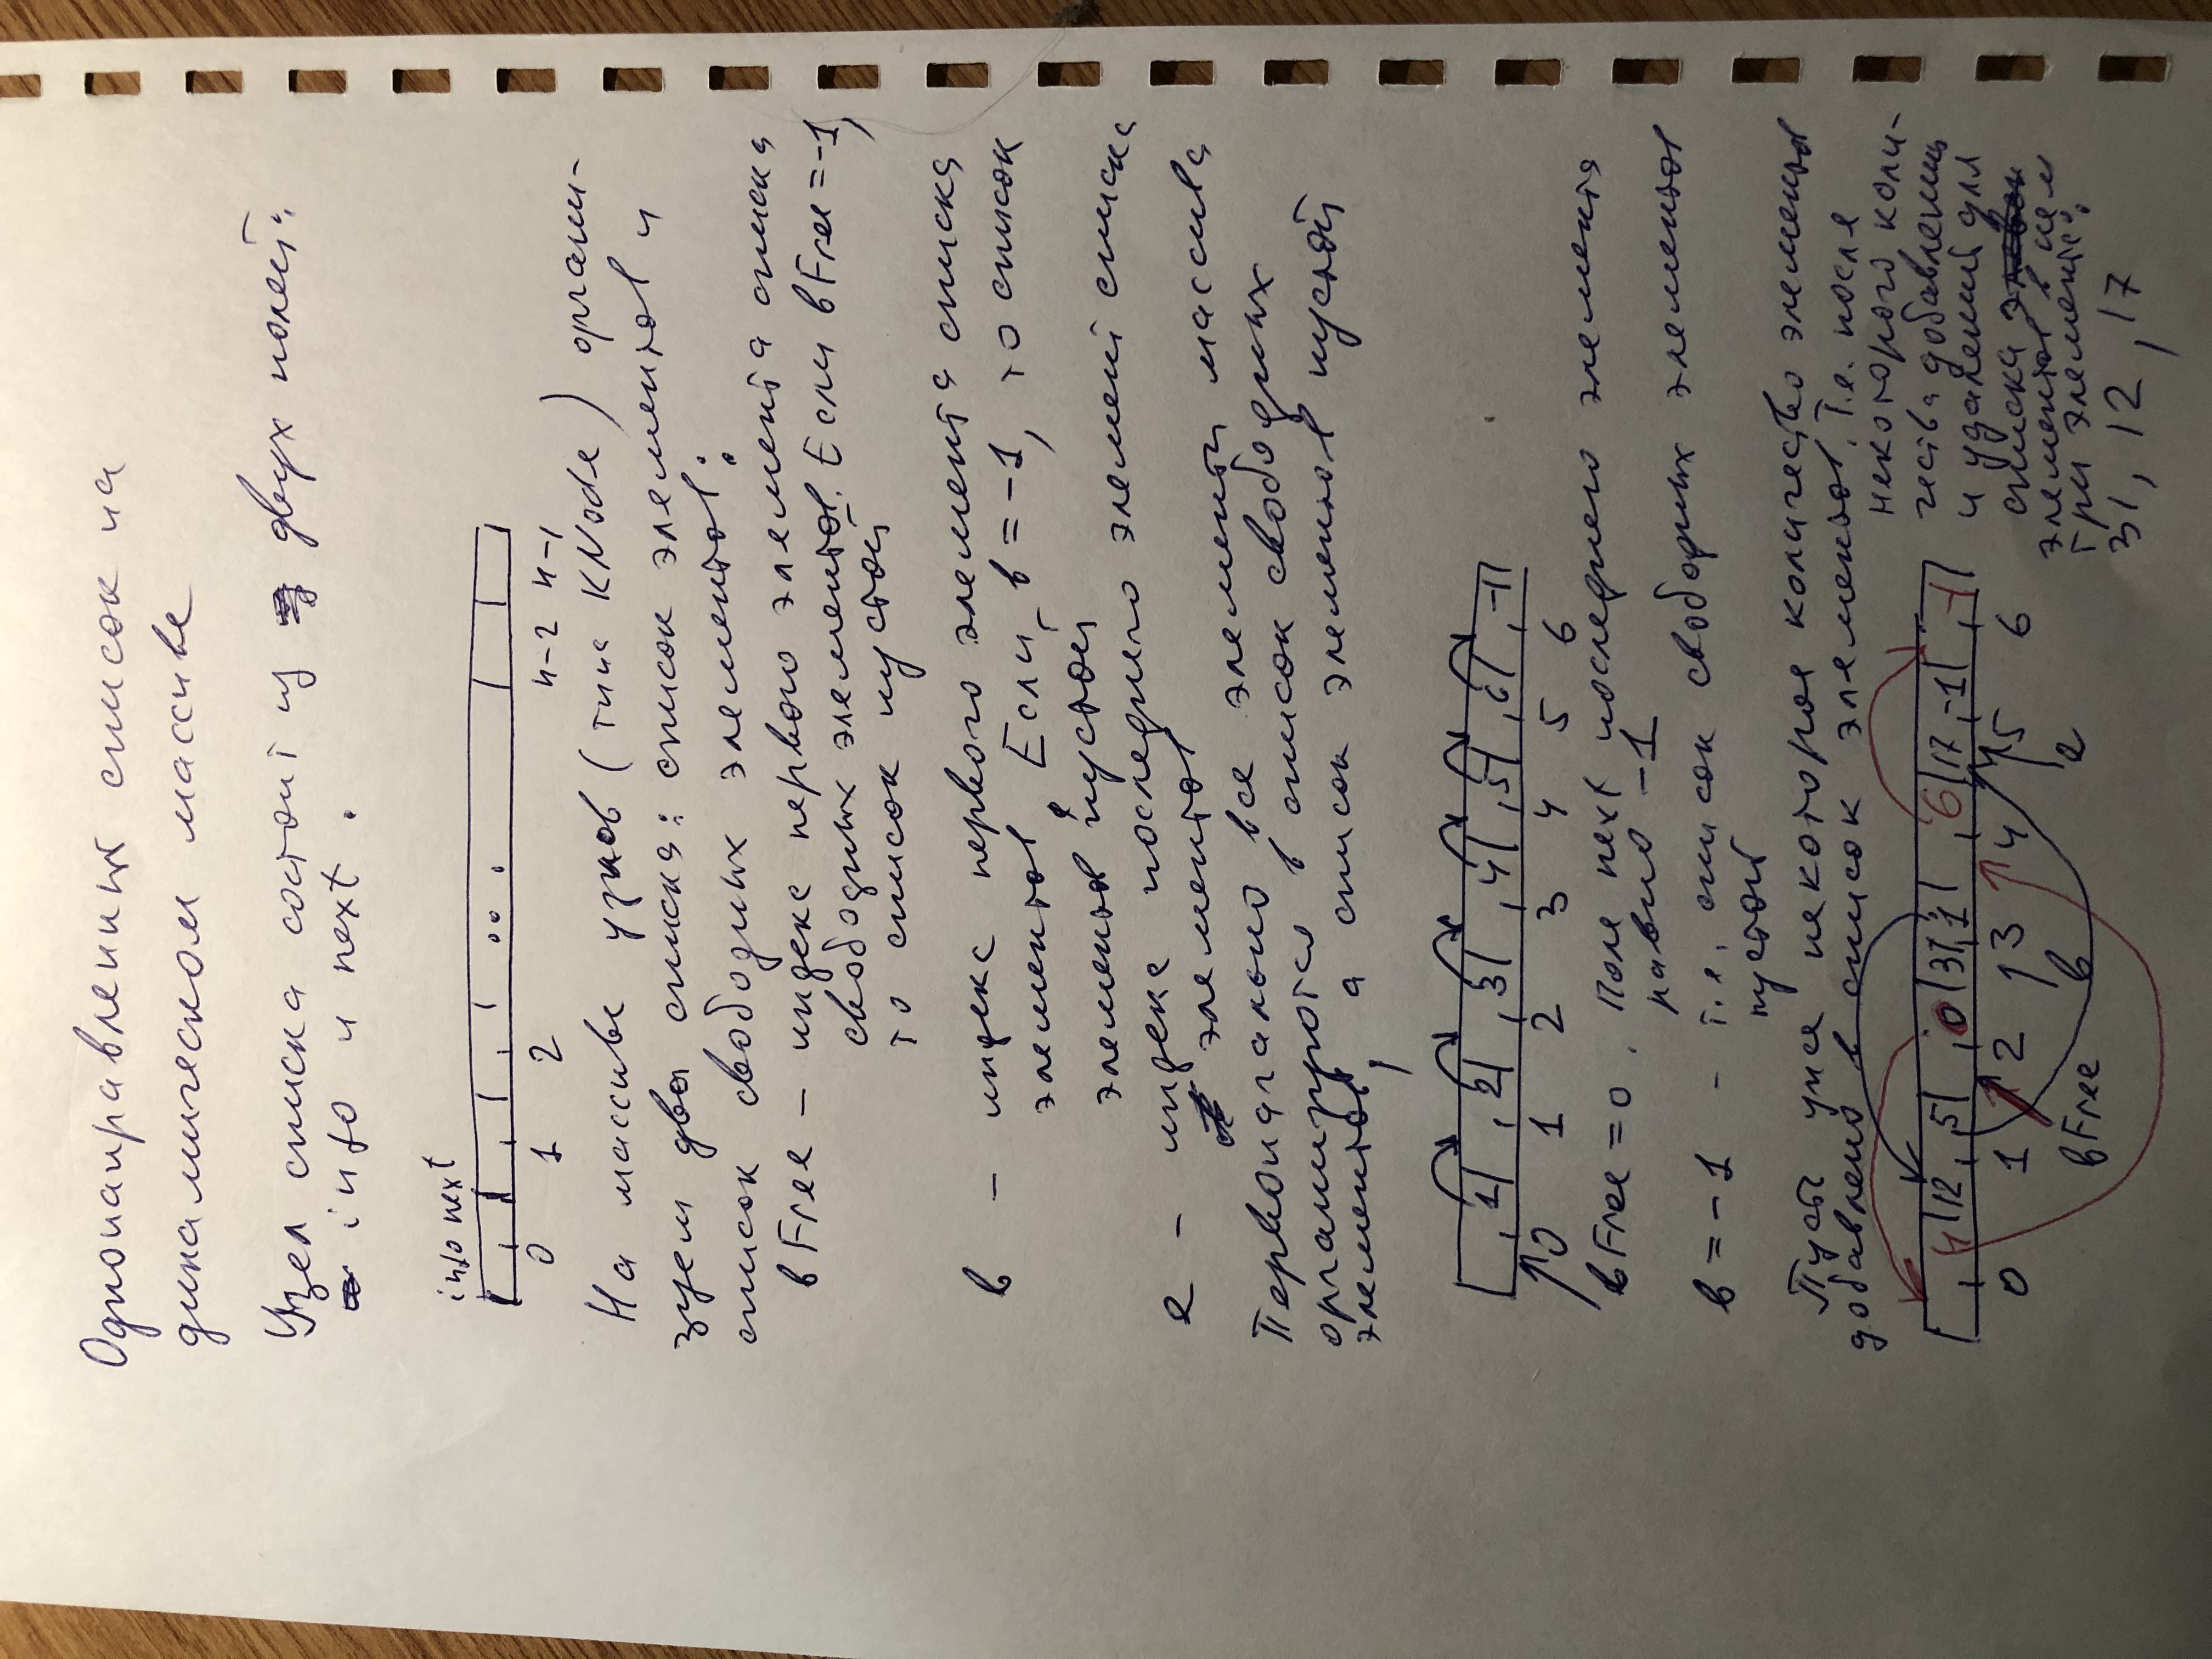 Однонаправленных список на
динамическом массиве
Узел списка состоит из двух полей:
info и next.
info next
0 1 2 n-2 n-1
На массиве узлов (типа KNode) органи-
зуем два списка: список элементов и
список свободных элементов:
bFree – индекс первого элемента списка
свободных элементов. Если bFree = -1,
то список пустой
b – индекс первого элемента списка
элементов. Если b = -1, то список
элементов пустой
e – индекс последнего элемент списка
элементов
Первоначально все элементы массива
организуются в список свободных
элементов, а список элементов пустой
1 2 3 4 5 6 -1
0 1 2 3 4 5 6
bFree = 0. Поле next последнего элемента
равно -1
b = -1 – т.е. список свободных элементов
пустой
Пусть уже некоторое количество элементов
добавлено в список элементов. Т.е. после
некоторого коли-
чества добавлений
и удалений для
списка
элементов в нем
три элемента:
31, 12, 17
4 12 5 0 31 1 6 17 -1 -1
0 1 2 3 4 5 6
bFree b e